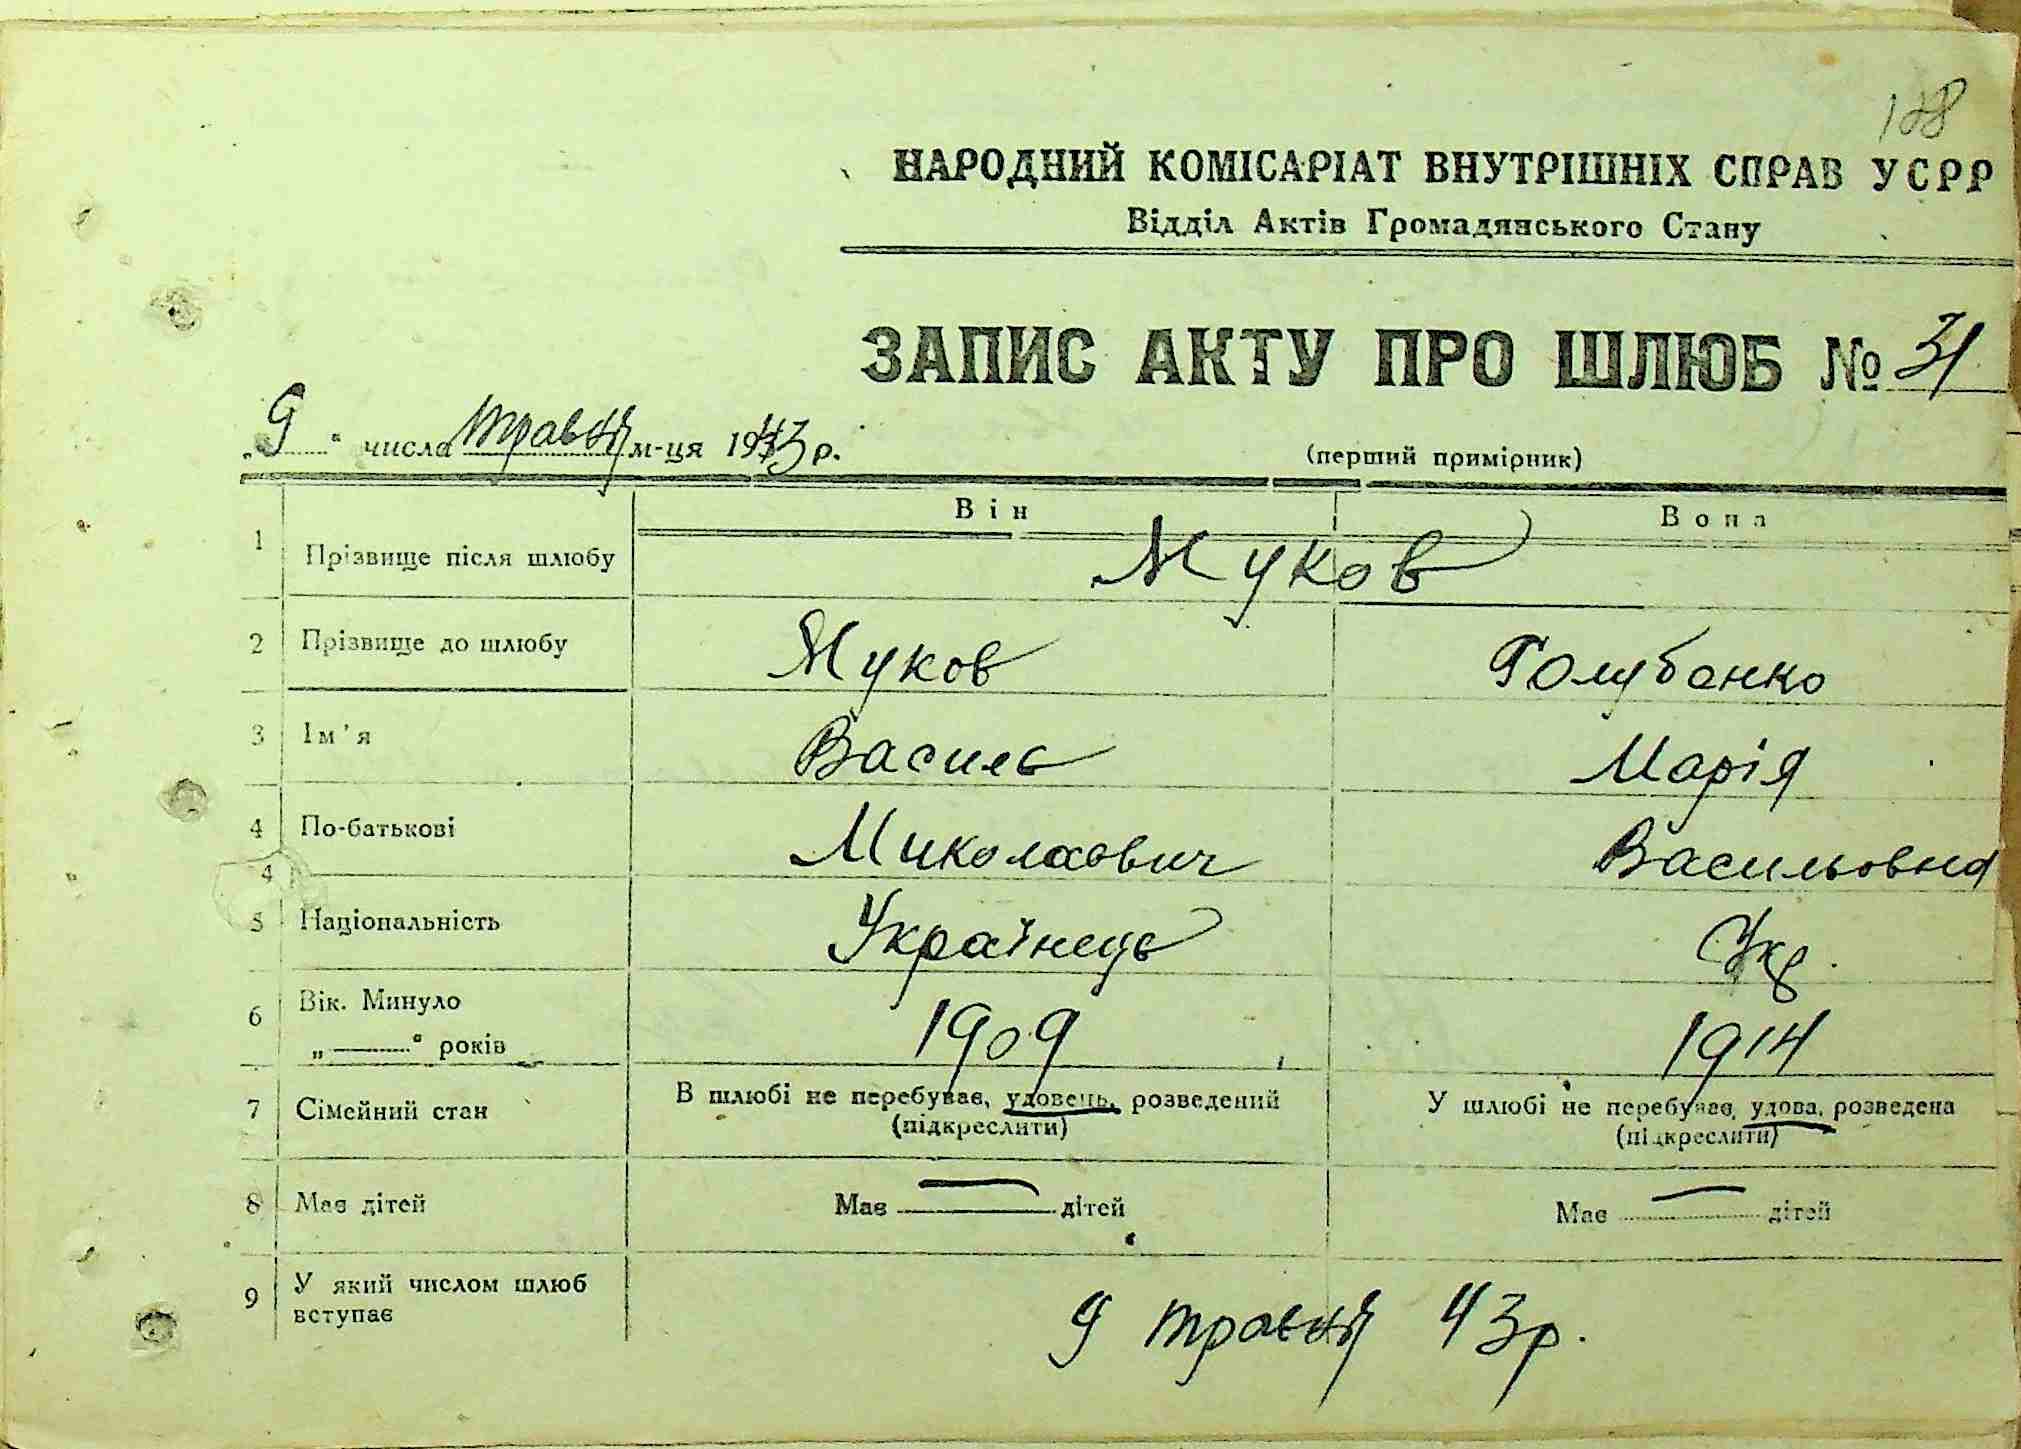 128
НАРОДНИЙ КОМІСАРІАТ ВНУТРІШНІХ СПРАВ УСРР
Відділ Актів Громадянського Стану
ЗАПИС АКТУ ПРО ШЛЮБ № 31
„9“ числа травня м-ця 1943 р.
(перший примірник)
Він Вона
1 Прізвище після шлюбу Жуков
2 Прізвище до шлюбу Жуков Голубенко
3 Ім'я Василь Марія
4 По-батькові Миколаєвич Васильовна
4
5 Національність Українець Укр.
6 Вік. Минуло 1909 1914
„ “ років
7 Сімейний стан В шлюбі не перебуває, удовець, розведений У шлюбі не перебуває, удова, розведена
(підкреслити) (підкреслити)
8 Має дітей Має — дітей Має — дітей
9 У який числом шлюб
вступає
9 травня 43 р.